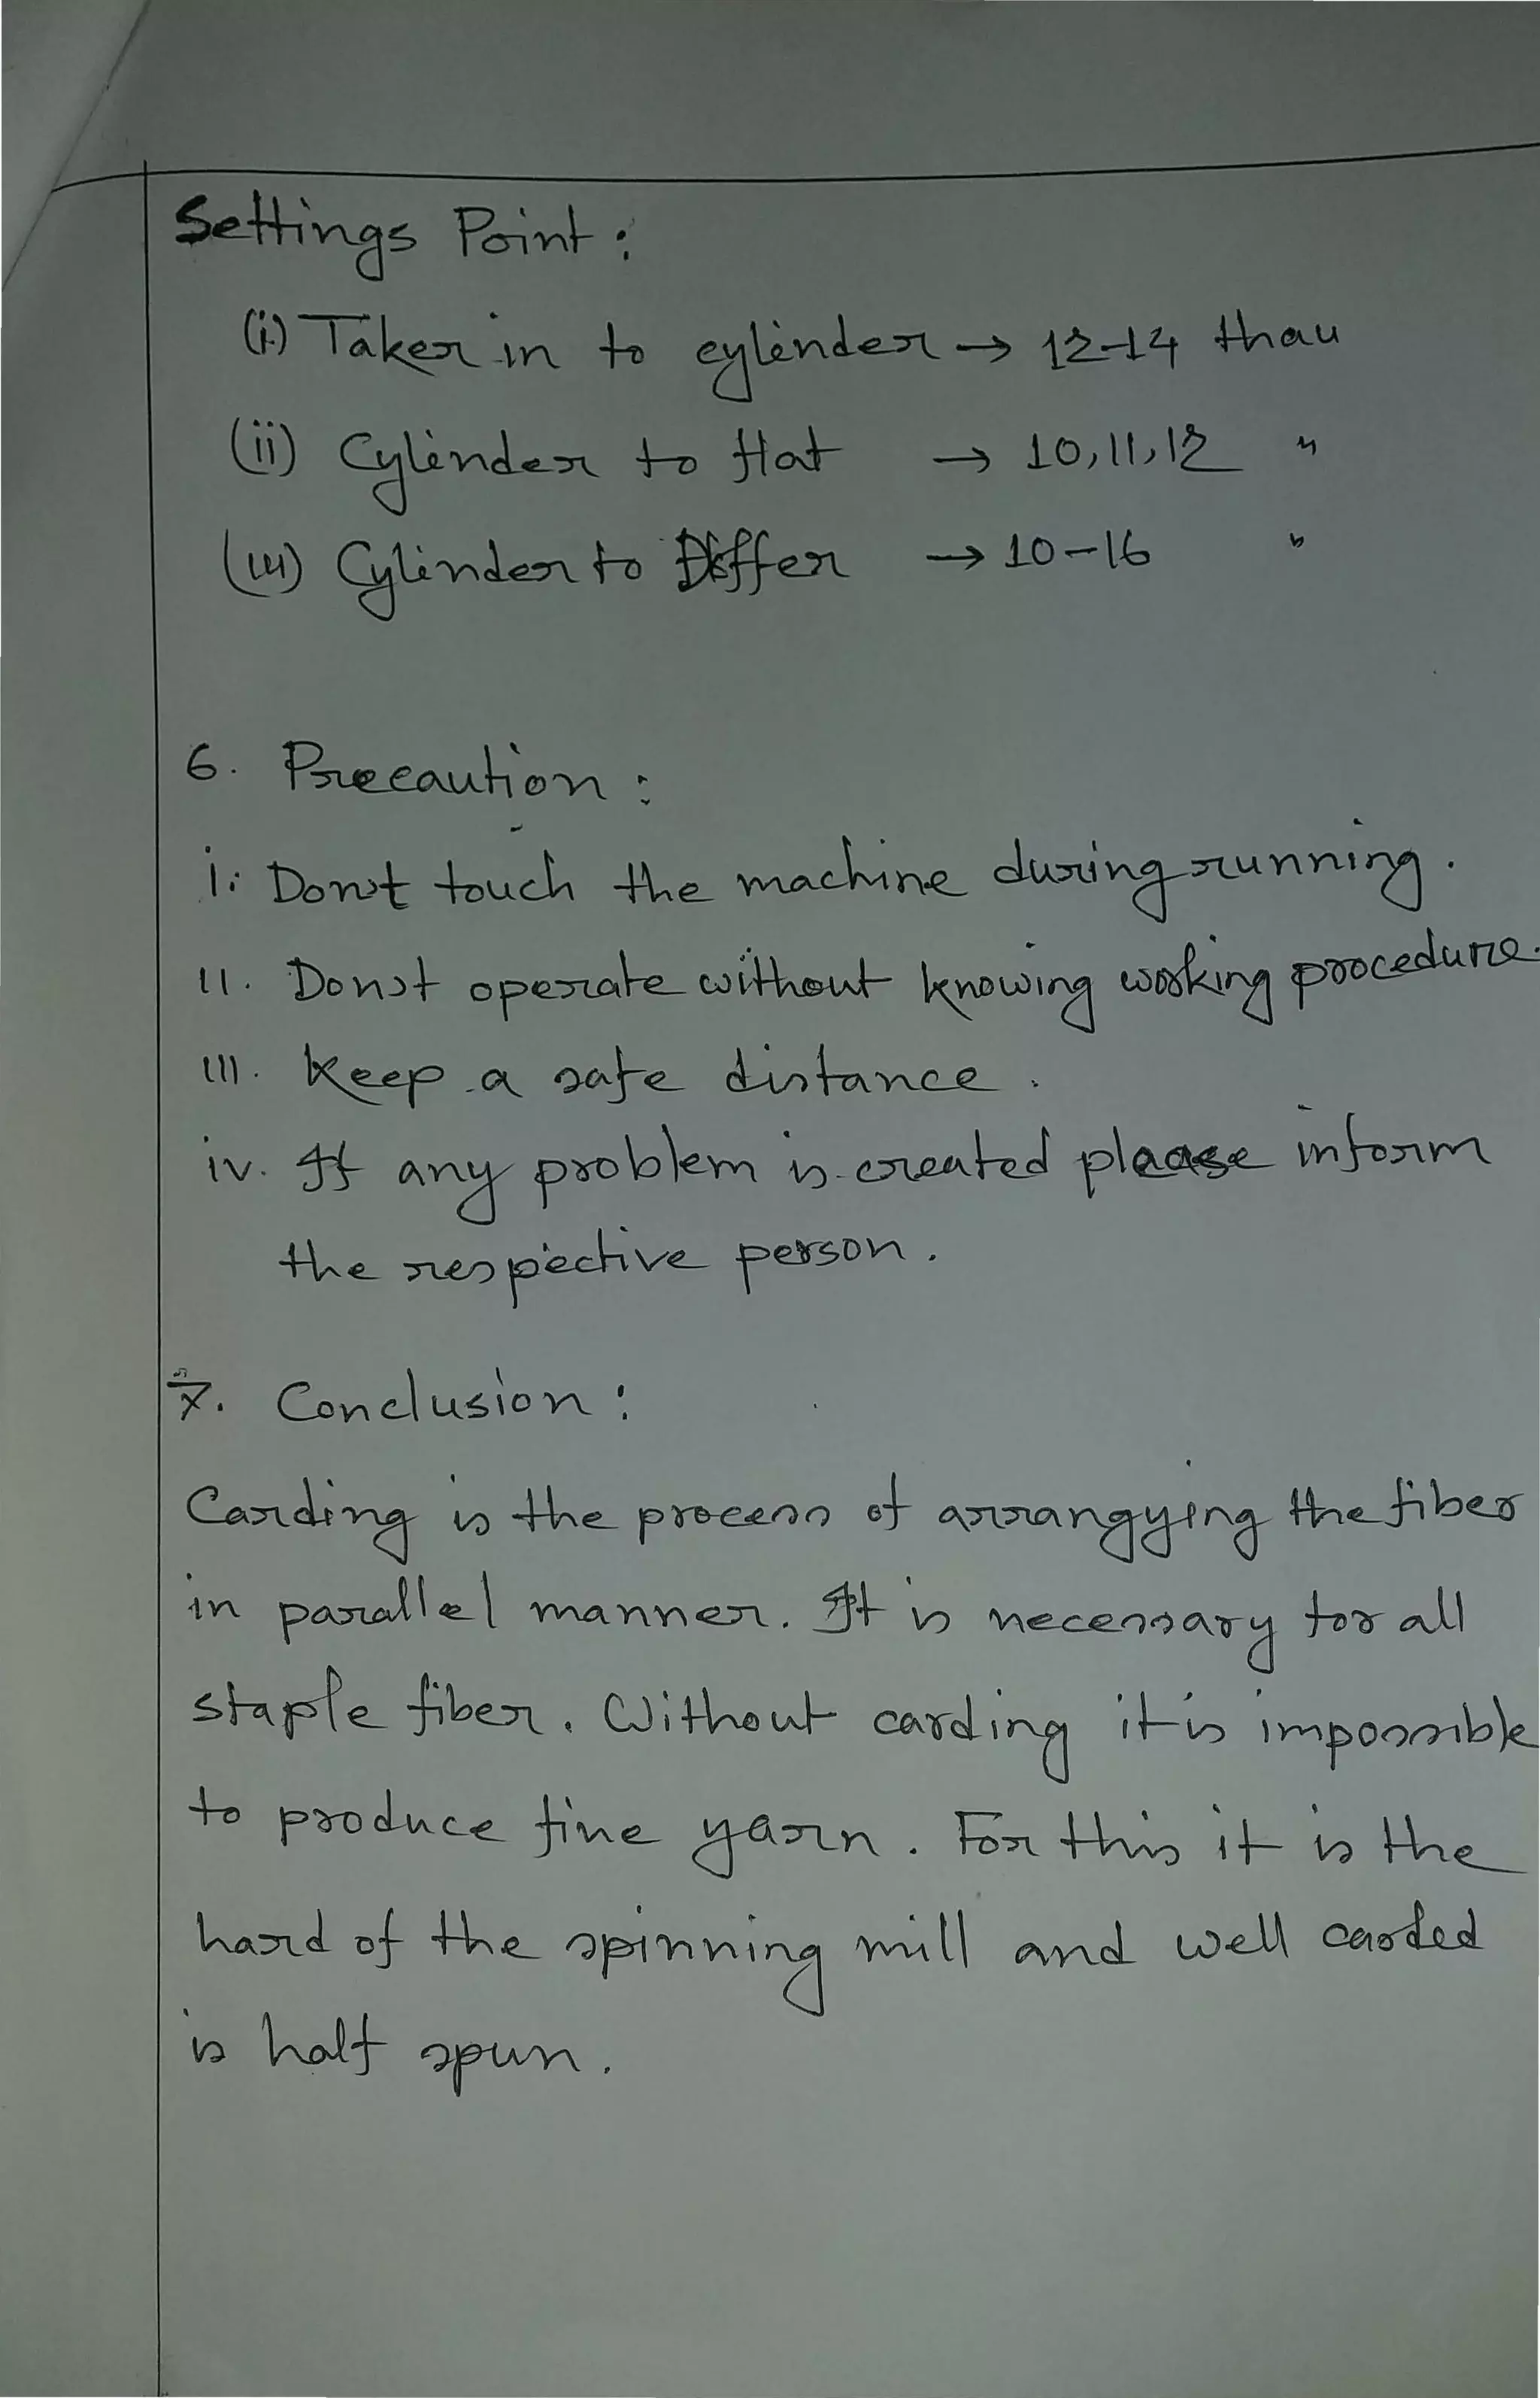 Settings Point :
(i) Taker in to cylinder → 12-14 thau
(ii) Cylinder to flat → 10,11,12 "
(iii) Cylinder to Differ → 10-16 "
6. Precaution :
i. Don't touch the machine during running.
ii. Don't operate without knowing working procedure.
iii. Keep a safe distance.
iv. If any problem is created please inform
the respective person.
7. Conclusion :
Carding is the process of arrangying the fiber
in parallel manner. It is necessary for all
staple fiber. Without carding it is impossible
to produce fine yarn. For this it is the
hard of the spinning mill and well carded
is half spun.